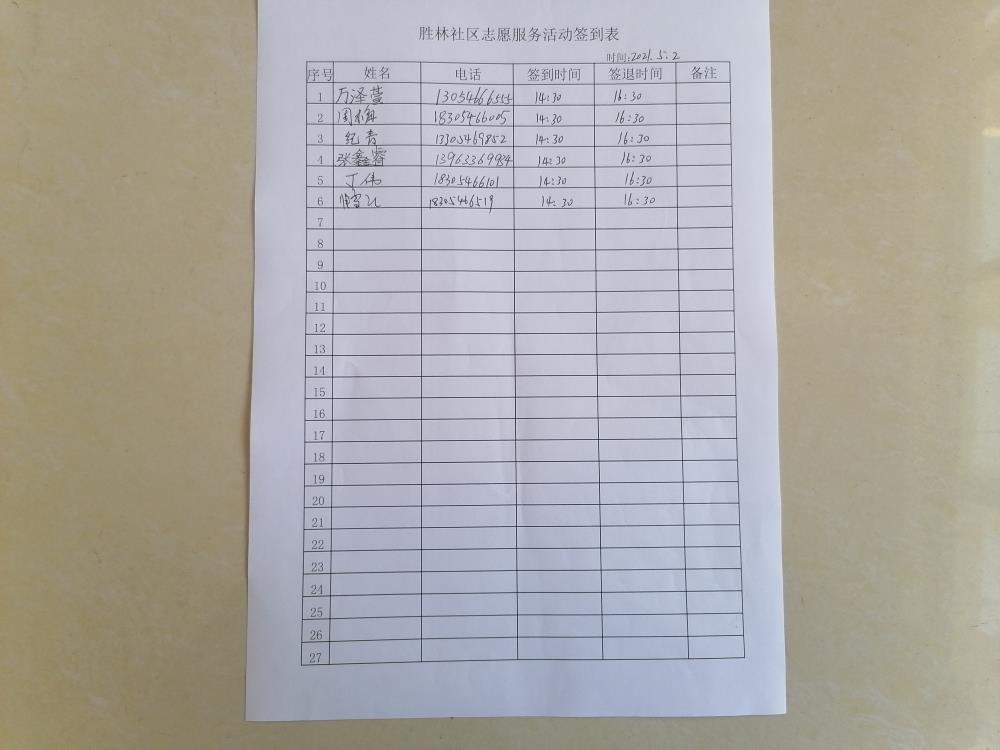 胜林社区志愿服务活动签到表
时间:2021.5.2
序号 姓名 电话 签到时间 签退时间 备注
1 万泽萱 13054666555 14:30 16:30
2 周梅 18305466005 14:30 16:30
3 纪青 13305469852 14:30 16:30
4 张鑫睿 13963369984 14:30 16:30
5 丁伟 18305466101 14:30 16:30
6 18305466519 14:30 16:30
7
8
9
10
11
12
13
14
15
16
17
18
19
20
21
22
23
24
25
26
27